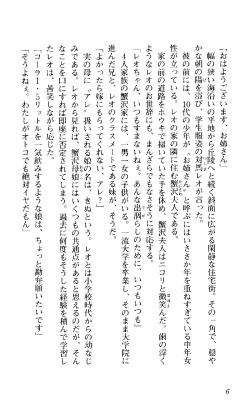 「おはようございます、お姉さん」
幅の狭い海沿いの平地から三陸へと続く斜面に広がる閑静な住宅街。その一角で、穏や
かな朝の陽を浴び、学生服姿の対馬レオが言った。
彼の前には、10代の少年が〝お姉さん〟と呼ぶにはいささか年を重ねすぎている中年女
性が立っている。レオの家の隣に住む蟹沢夫人である。
家の前の道路をホウキで掃いていた手を休め、蟹沢夫人はニコリと微笑んだ。歯の浮く
ようなレオのお世辞にも、まんざらでもなさそうに対応する。
「レオちゃん、いつもすまないねぇ。あんな出涸らしのために、いつもいつも」
4人家族の蟹沢家には、一男一女の子供がいる。一流大学を卒業し、そのまま大学院に
進んだ兄とレオのクラスメートである妹が一人だった。
「よかったら嫁にもらってくれない？ アレ」
実の母に〝アレ〟扱いされる娘の名は、きぬという。レオとは小学校時代からの幼なじ
みである。レオから見れば、蟹沢母娘にはいくつもの共通点があると思えるのだが、そん
なことを口にすれば即座に否定されてしまう。過去に何度もそうした経験を積んで学習し
たレオは、苦笑しながら応じた。
「コーラ1・5リットルを一気飲みするような娘は、ちょっと勘弁願いたいです」
「そうよねぇ。わたしがオトコでも絶対イヤだもん」
6